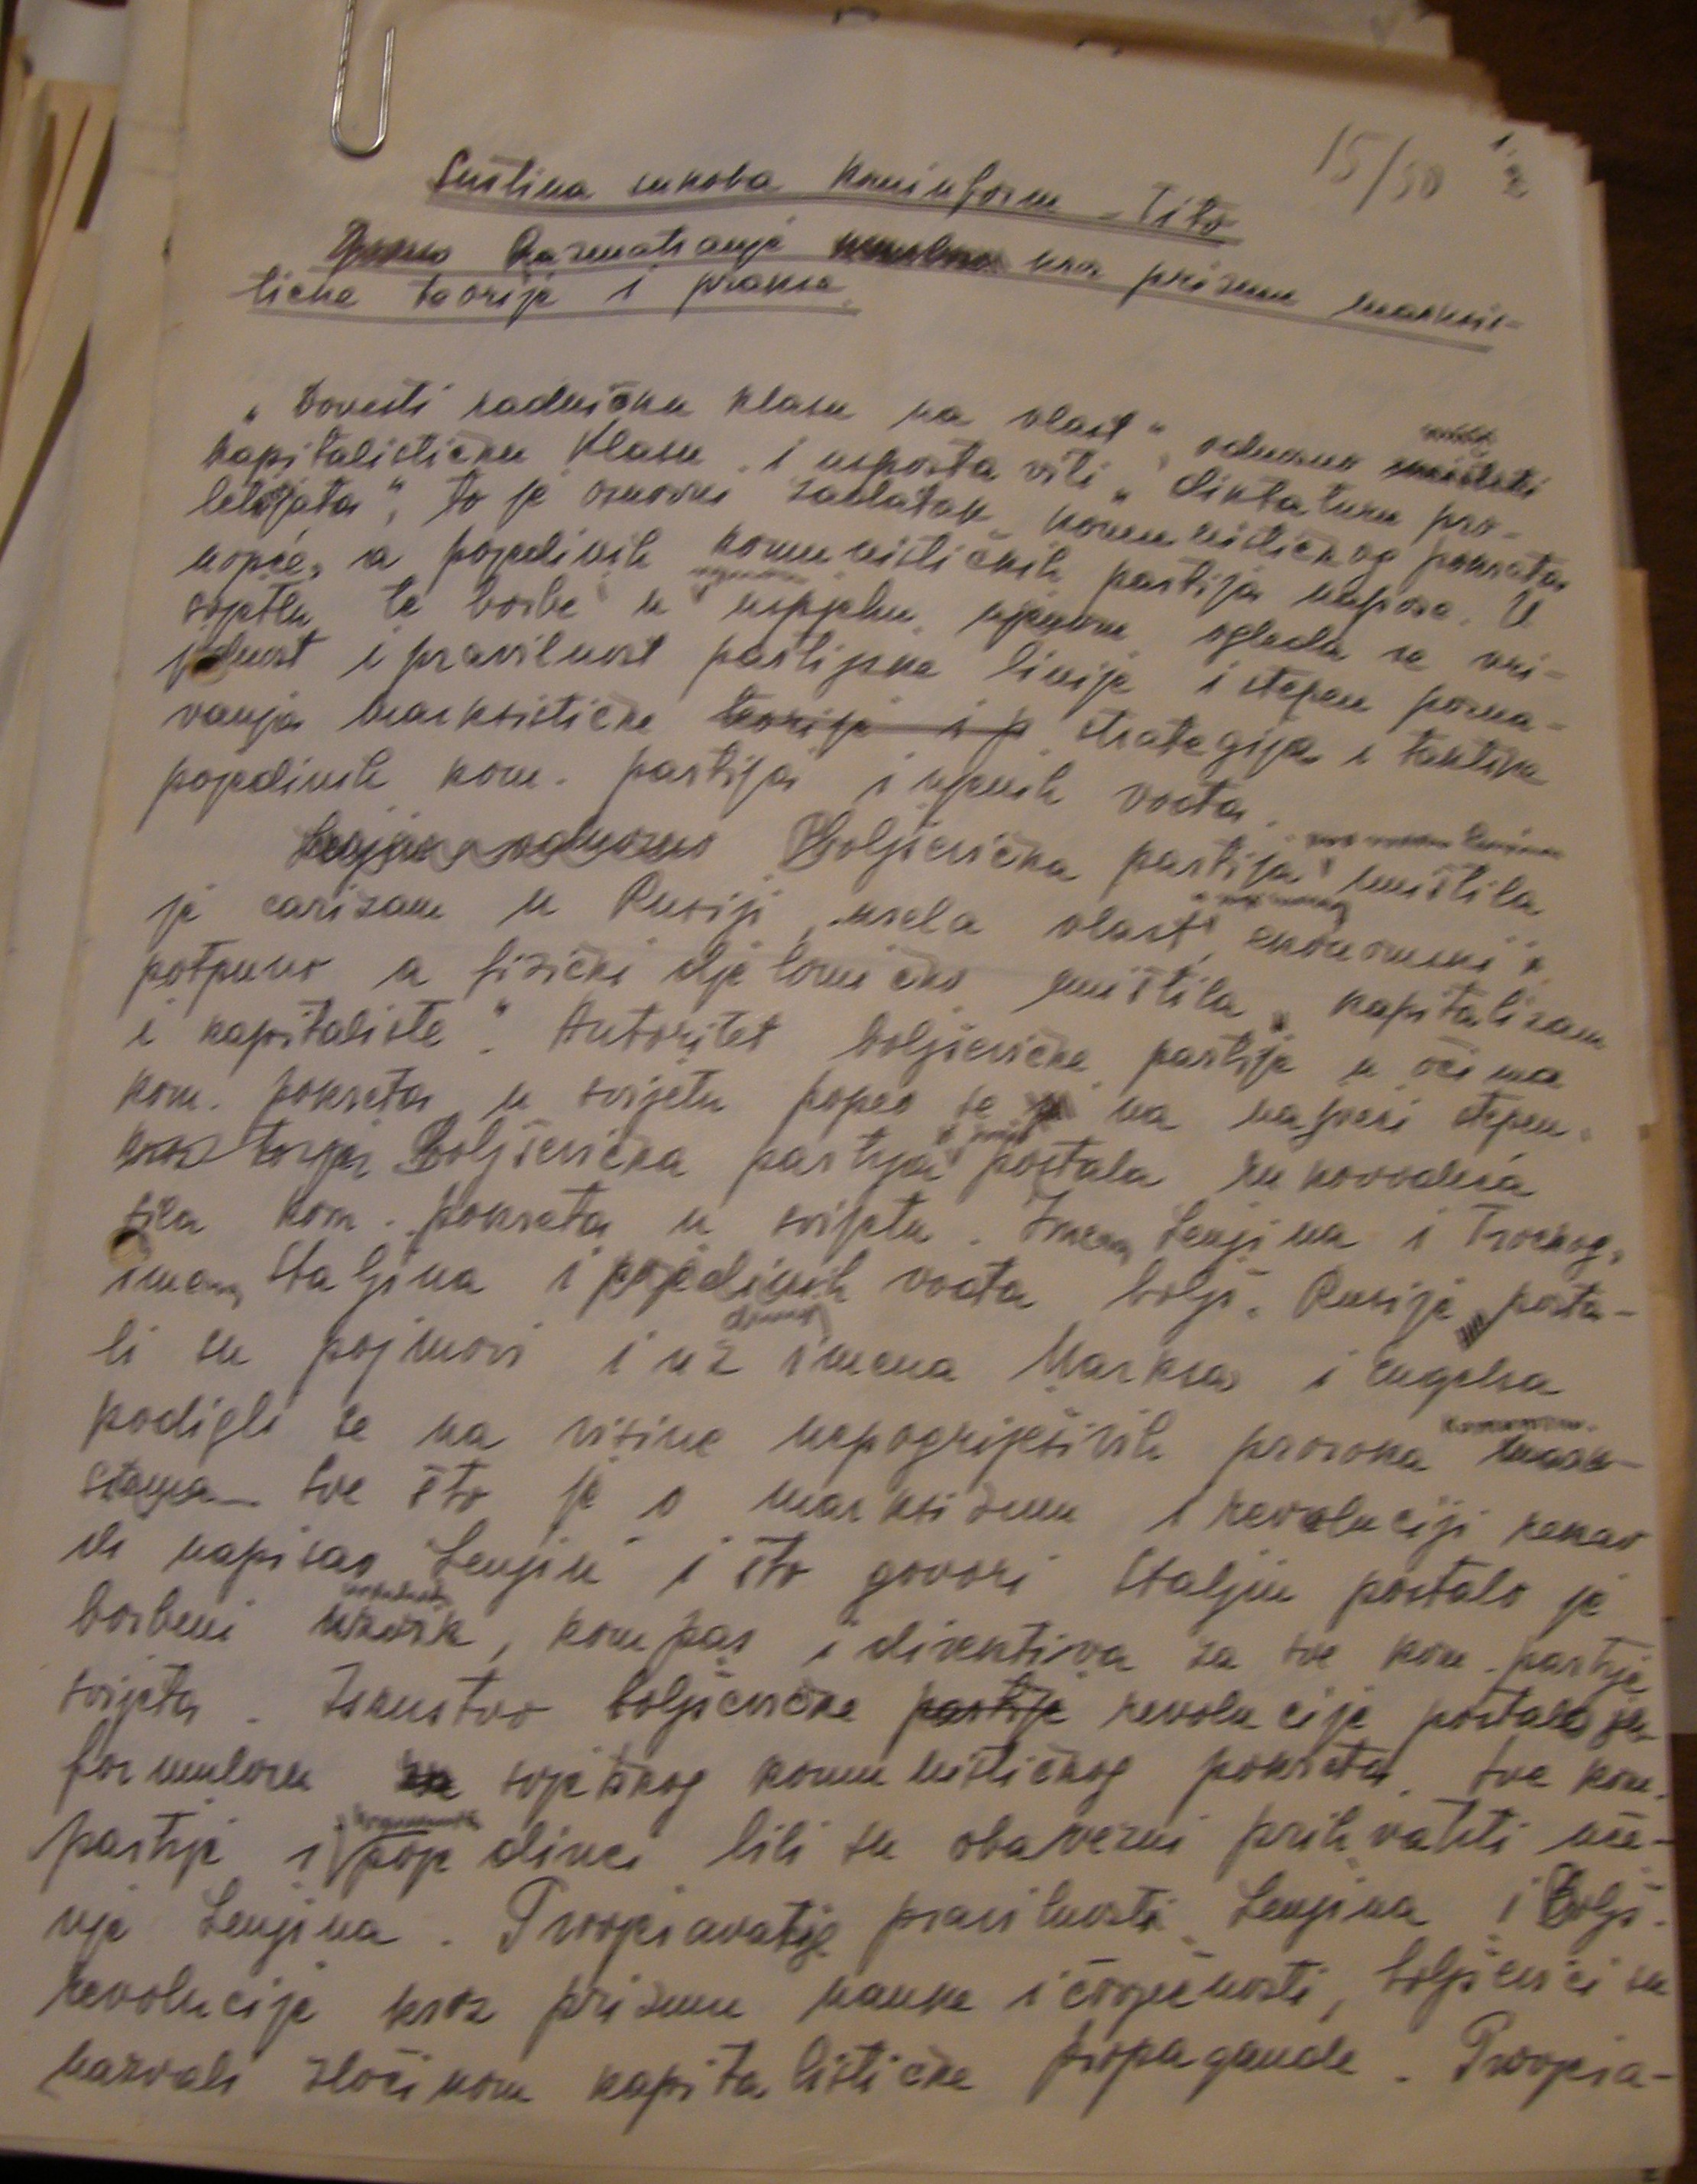 15/50
1.
Suština sukoba Kominform – Tito
Razmatranje kroz prizmu marksis-
tičke teorije i prakse.
„Dovesti radničku klasu na vlast“, odnosno uništiti
kapitalističku klasu i uspostaviti „diktaturu pro-
letarijata“, to je osnovni zadatak komunističkog pokreta
uopće, a pojedinih komunističkih partija napose. U
svjetlu te borbe i u uspjehu njenom ogleda se vri-
jednost i pravilnost partijske linije i stepen pozna-
vanja marksističke teorije i p strategije i taktike
pojedinih kom. partija i njenih vođa.
Lenjin, odnosno Boljševička partija uništila
je carizam u Rusiji, uzela vlast, ekonomski
potpuno a fizički djelomično uništila „kapitalizam
i kapitaliste“. Autoritet boljševičke partije u očima
kom. pokreta u svijetu popeo se na najveći stepen.
Boljševička partija postala rukovodeća
sila kom. pokreta u svijetu. Imena Lenjina i Trockog,
imena Staljina i pojedinih vođa boljš. Rusije posta-
li su pojmovi i uz imena Marksa i Engelsa
podigli se na visine nepogriješivih proroka
Sve što je o marksizmu i revoluciji rekao
ili napisao Lenjin i što govori Staljin postalo je
borbeni uzorik, kompas i direktiva za sve kom. partije
svijeta. Iskustvo boljševičke partije revolucije postalo je
formulom svjetskog komunističkog pokreta. Sve kom.
partije i pojedinci bili su obavezni prihvatiti uče-
nje Lenjina. Provjeravatije pravilnosti Lenjina i Boljš.
revolucije kroz prizmu nauke i čovječnosti, boljševici su
nazvali zločinom kapitalističke propagande. Provjera-